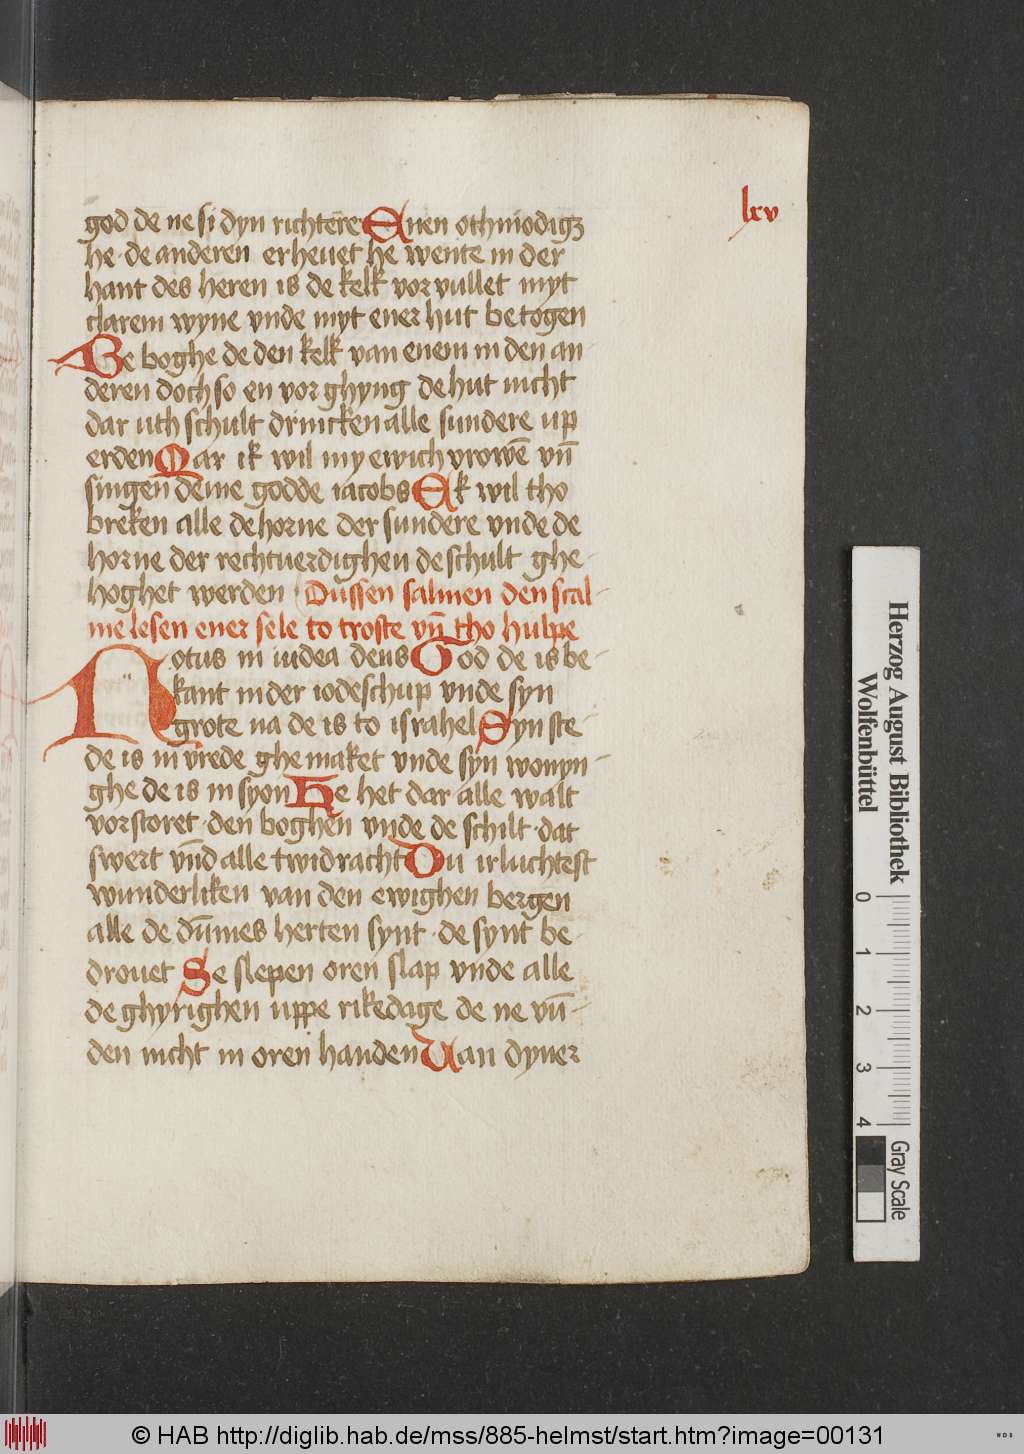 lxv
god de ne si dyn richtere Enen othmodiget
he · de anderen erheuet he wente in der
hant des heren is de kelk vor vullet myt
clarem wyne vnde myt ener hut betogen
He boghe de den kelk van enem in den an
deren doch so en vor ghyng de hut nicht
dar uth schult drincken alle sundere up
erden Uar ik wil my ewich vrowē vn̄
singen deme godde iacobs Ek wil tho
breken alle de horne der sundere vnde de
horne der rechtuerdighen de schult ghe-
hoghet werden Dussen salmen den scal-
me lesen ener sele to troste vn̄ tho hulpe
Notus in iudea deus God de is be-
kant in der iodeschup vnde syn
grote na de is to israhel Syn ste-
de is in vrede ghemaket vnde syn wonyn-
ghe de is in syon He het dar alle walt
vorstoret · den boghen vnde de schilt · dat
swert vn̄d alle twidracht Du irluchtest
wunderliken van den ewighen bergen
alle de dūmes herten synt · de synt be-
drouet Se slepen oren slap vnde alle
de ghyrighen uppe rikedage de ne vn̄-
den nicht in oren handen Uan dyner
Herzog August Bibliothek
Wolfenbüttel
0 1 2 3 4
Gray Scale
© HAB http://diglib.hab.de/mss/885-helmst/start.htm?image=00131
WDB